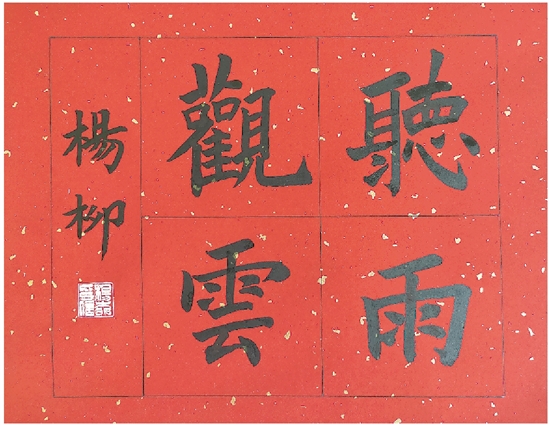 聽雨
觀雲
楊柳